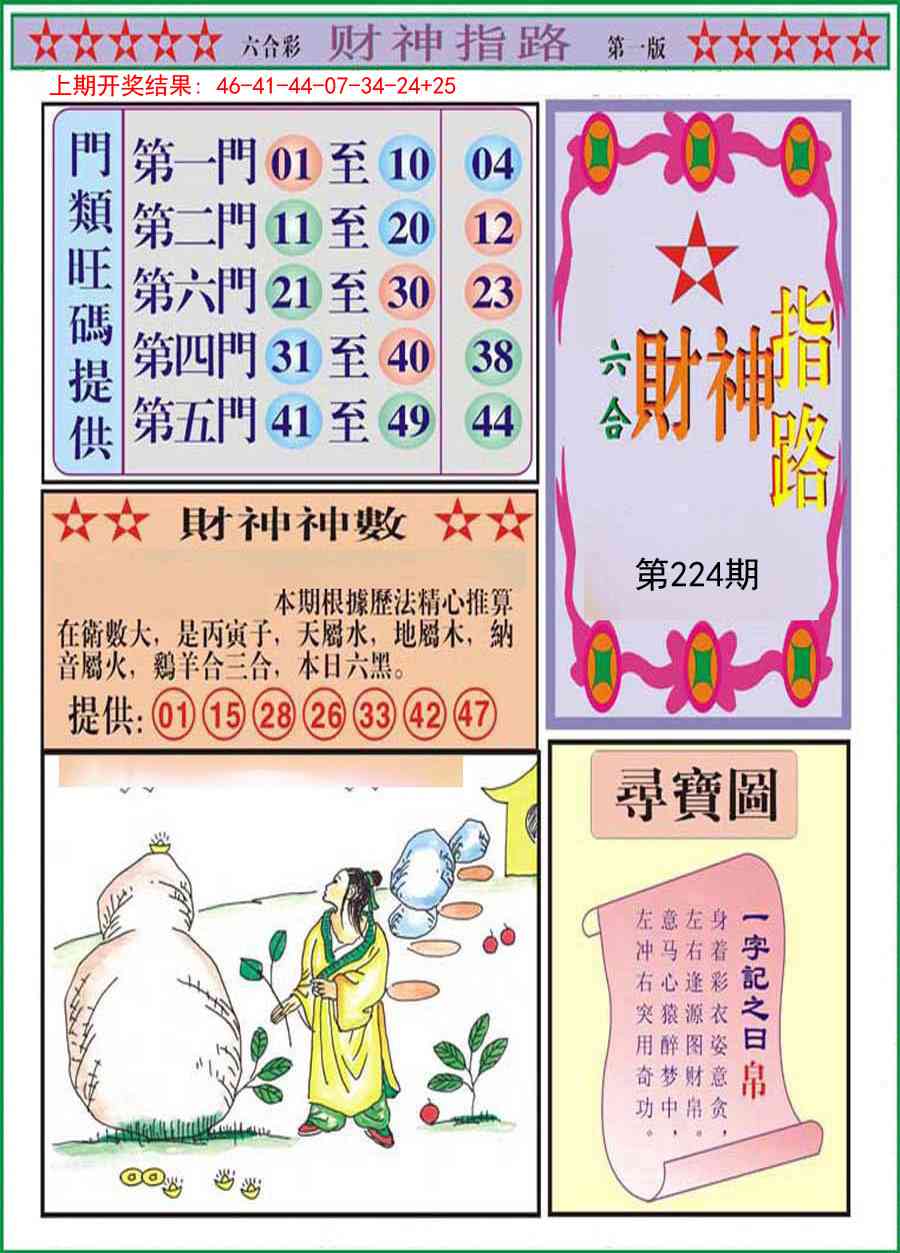 六合彩 财神指路 第一版
上期开奖结果：46-41-44-07-34-24+25
門類旺碼提供
第一門 01 至 10 04
第二門 11 至 20 12
第六門 21 至 30 23
第四門 31 至 40 38
第五門 41 至 49 44
六合 財神 指路
第224期
財神神數
本期根據歷法精心推算
在衛數大，是丙寅子，天屬水，地屬木，納
音屬火，鷄羊合三合，本日六黑。
提供: 01 15 28 26 33 42 47
尋寶圖
一字記之曰 帛
身着彩衣姿意贪，
左右逢源图财帛。
意马心猿醉梦中，
左冲右突用奇功。